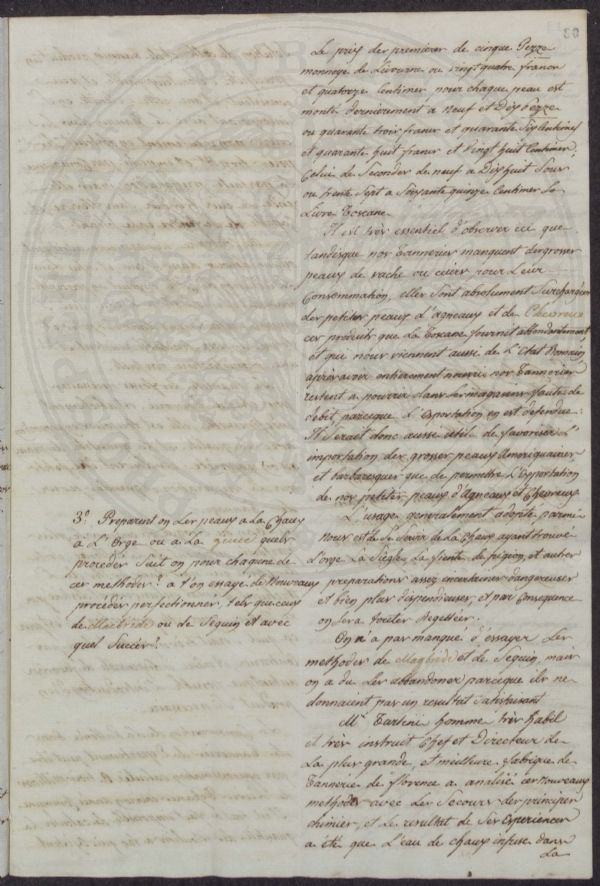 83
Le prix des premieres de cinque Pezze
monnoye de Livourne ou vingt quatre francs
et quatorze Centimes pour chaque peau est
monté dernierement a neuf et Dix pezze
ou quarante trois francs et quarante Sept Centimes
et quarante huit francs et vingt huit Centimes,
Celui de Secondes de neuf a Dixhuit Sous
ou trente Sept a Soixante quinze Centimes la
Livre Toscane
Il est très essentiel d'observer ici que
tandisque nos Tanneries manquent des grosses
peaux de vache ou cuirs pour Leur
Consommation, elles Sont absolument Surchargées
des petites peaux d'agneaux et de Chevreux
ces produits que La Toscane fournit abbondantement,
et que nous viennent aussi de L'Etat Romain
après avoir entierement nourri nos Tanneries
restent a pourrir dans les magazins faute de
debit, parceque L'exportation en est defendue.
Il Serait donc aussi utile de favoriser L'
importation des grosses peaux Americquaines
et barbaresques que de permettre L'Exportation
de nos petites peaux d'Agneaux et Chevreux
3.º Preparent on Les peaux a La Chaux
à L'Orge ou à La quels
procédés Suit on pour chacune de
ces methodes? a t'on essayé de Nouveaux
procédés perfectionnés, tels que ceux
de Macbride ou de Seguin et avec
quel Succés?
L'usage generalement adopté parmi
Nous est de Se Servir de La Chaux ayant trouvé
L'orge La Siegle, La fiente de pigeon, et autres
preparations assez incertaines dangereuses
et bien plus dispendieuses, et par Consequence
on Les a toutes Regettées.
On n'a pas manqué d'éssayer Les
methodes de Magbride et de Seguin, mais
on a du Les abbandoner parceque ils ne
donnaient pas un resultat Satisfaisant
M.r Tartini homme très habil
et très instruit Chef et Directeur de
La plus grande, et meilleure fabrique de
Tannerie de florence a analisé ces nouveaux
methodes avec Les Secours des principes
chimies, et Le resultat de Ses Experiences
a été que L'eau de chaux infuse dans
La